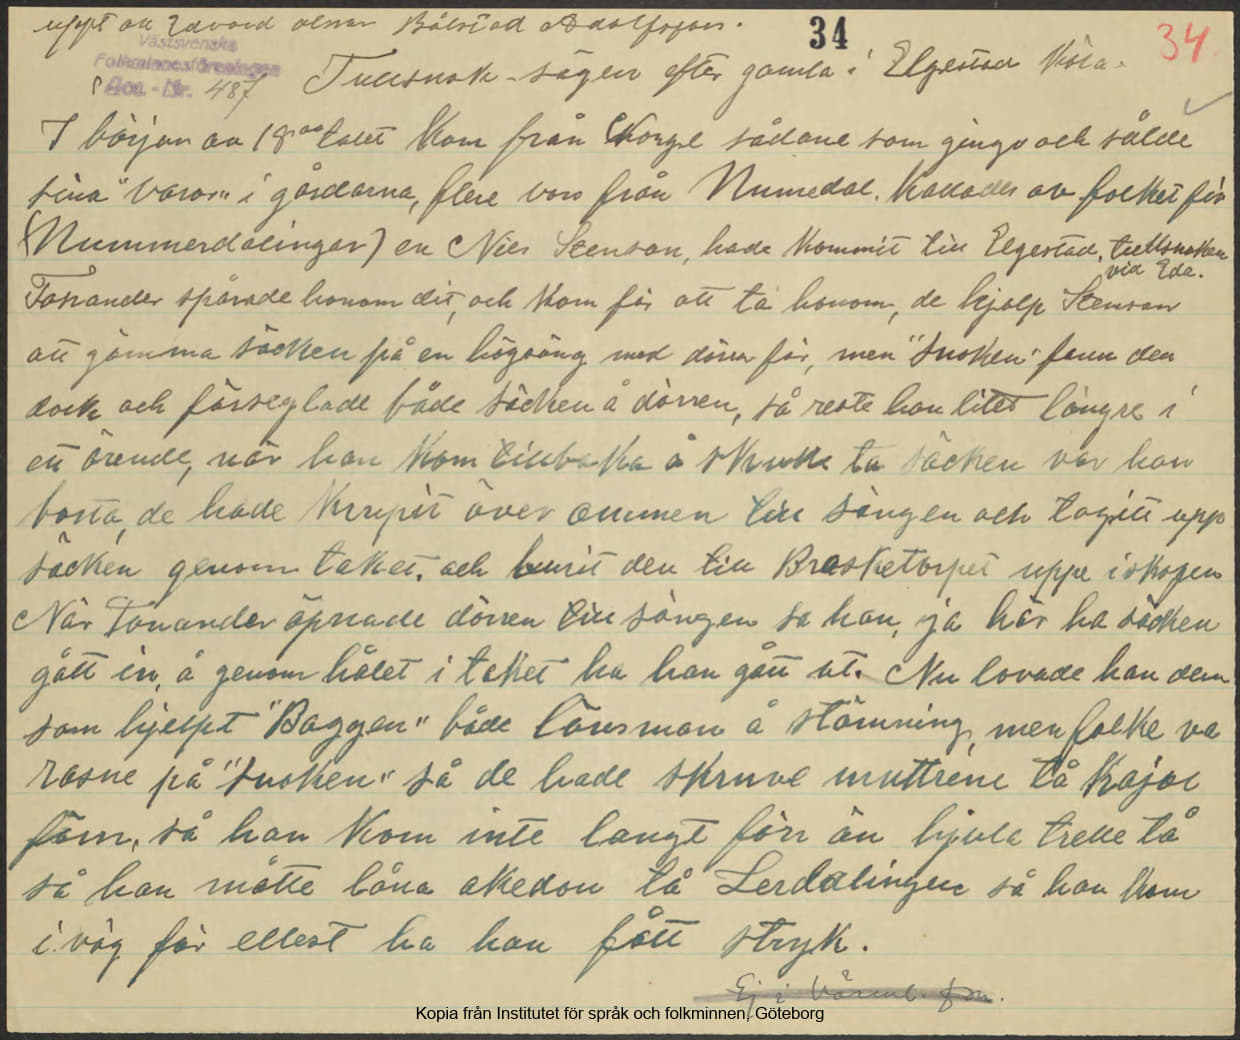 uppt av Edvard olsson Bålstad Adolfsfors.
34
34.
Västsvenska
Folkminnesföreningen
Acc. - Nr. 487
Tullsnok-sägen efter gamla i Elgestad Köla.
I början av 18oo talet kom från Norge sådane som gingo och sålde
sina "varor" i gårdarna, flere voro från Numedal. kallades av folket för
(Nummerdalingar) en Nils Stenson, hade kommit till Elgestad, tullsnoken
vid Eda.
Fossander spårade honom dit, och kom för att ta honom, de hjalp Stenson
att gömma säcken på en högsäng med dörr för, men "snoken" fann den
dock och förseglade både säcken å dörren, så reste han litet längre i
ett ärende, när han kom tillbaka å skulle ta säcken var han
borta, de hade krupit över ommen till sängen och tagitt upp
säcken genom taket. och burit den till Brasketorpet uppe i skogen
När Fonander öpnade dörren till sängen sa han, ja här ha säcken
gått in, å genom hålet i taket ha han gått ut. Nu lovade han dem
som hjelpt "Baggen" både länsman å stämning, men folke va
rasne på "snoken" så de hade skruve muttrene tå kajol
fäm, så han kom inte langt förr än hjula trelle tå
så han måtte låna akedon tå Lerdalingen så han kom
i väg för ellest ha han fått stryk.
Ej i Värml. fm.
Kopia från Institutet för språk och folkminnen, Göteborg